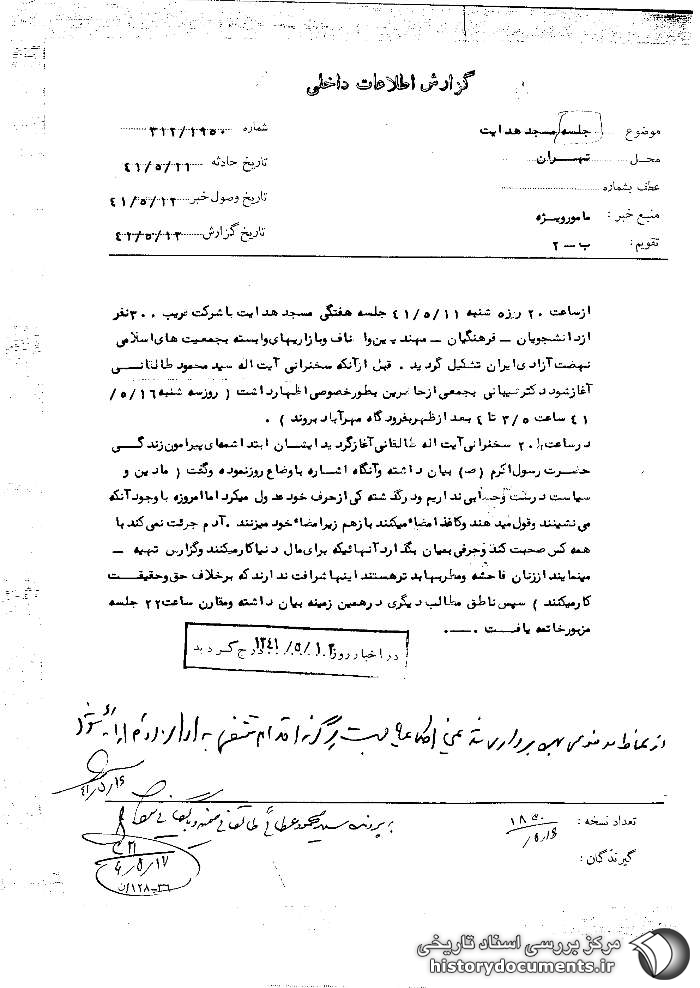 گزارش اطلاعات داخلی
موضوع جلسه مسجد هدایت
شماره ۳۱۲/۱۹۵۰
محل تهران
تاریخ حادثه ۴۱/۵/۱۱
عطف بشماره
تاریخ وصول خبر ۴۱/۵/۱۲
منبع خبر : مامورویژه
تاریخ گزارش ۴۱/۵/۱۳
تقویم : ب ــ ۲
ازساعت ۲۰ روزه شنبه ۴۱/۵/۱۱ جلسه هفتگی مسجد هدایت با شرکت قریب ۳۰۰نفر
ازدانشجویان ــ فرهنگیان ــ مهندسین واصناف وبازاریهای وابسته بجمعیت های اسلامی
نهضت آزادی ایران تشکیل گردید . قبل ازآنکه سخنرانی آیت اله سید محمود طالقانـــی
آغازشود دکترشیبانی بجمعی ازحاضرین بطورخصوصی اظهارداشت ( روزسه شنبه ۵/۱۶/
۴۱ ساعت ۳/۵ تا ۴ بعد ازظهربفرودگاه مهرآباد بروند ) .
درساعت ۲۰ سخنرانی آیت اله طالقانی آغازگردید ایشان ابتدا شمه‌ای پیرامون زندگـــی
حضرت رسول اکرم (ص) بیان داشته وآنگاه اشاره باوضاع روزنموده وگفت ( مادین و
سیاست درست وحسابی نداریم ودرگذشته کی ازحرف خود عدول میکرد اما امروزه با وجود آنکه
می نشینند وقول مید هند وکاغذ امضاء میکنند بازهم زیرامضاء خود میزنند .آدم جرئت نمی کند با
همه کس صحبت کند وحرفی بمیان بگذارد آنهائیکه برای مال دنیا کارمیکنند وگزارش تهیه ــ
مینمایند اززنان فاحشه ومطربهابد ترهستند اینها شرافت ندارند که برخلاف حق وحقیقـــت
کارمیکنند ) سپس ناطق مطالب دیگری درهمین زمینه بیان داشته ومقارن ساعت ۲۲ جلسه
مزبورخاتمه یافـــت .ــــ.
در اخبار روز ۱۳۴۱/۵/۱۲ درج گردید
از لحاظ بهره برداری اقدام شود
۴۱/۵/۱۶
تعداد نسخه :
۱۸۵۰
۵/۱۶/
به پرونده سید محمود طالقانی
گیرندگان :
۴/۵/۱۷
مرکز بررسی اسناد تاریخی
historydocuments.ir